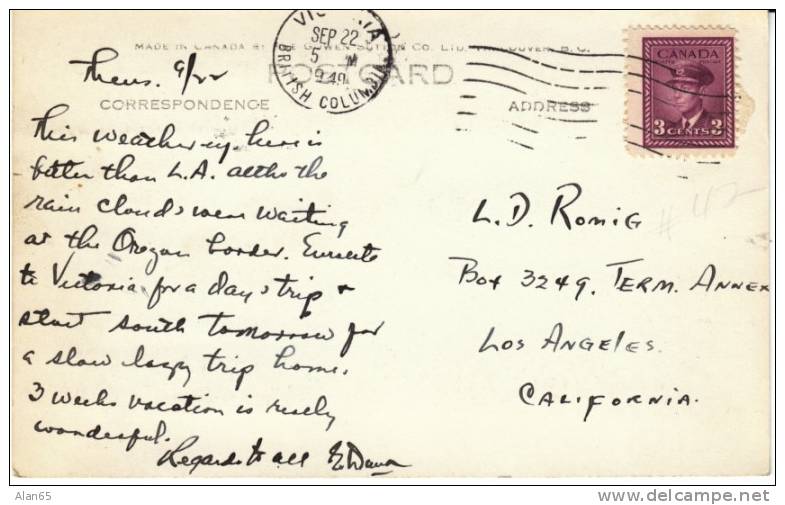 MADE IN CANADA BY THE GOWEN SUTTON CO. LTD. VANCOUVER, B. C.
VICTORIA
SEP 22
5 M
1949
BRITISH COLUMBIA
POST CARD
CANADA
3 CENTS 3
Thurs. 9/22
CORRESPONDENCE
ADDRESS
This weather up here is
better than L.A. altho the
rain clouds were waiting
at the Oregon border. Enroute
to Victoria for a day's trip +
start south tomorrow for
a slow lazy trip home.
3 weeks vacation is really
wonderful.
Regards to all
L.D. Romig
Box 3249, TERM. ANNEX
LOS ANGELES.
CALIFORNIA.
# 42
Alan65
delcampe.net